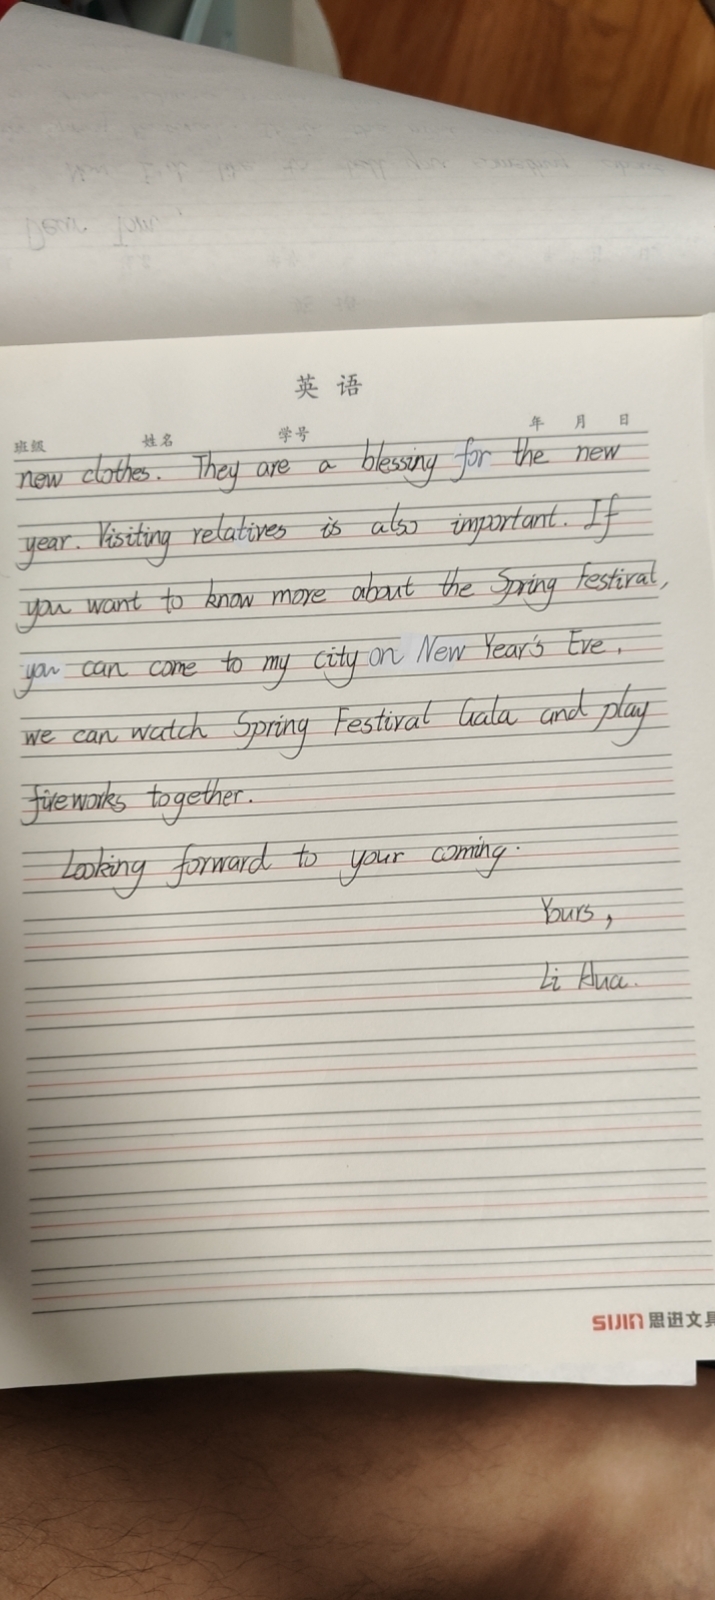 Dear Tom,
英 语
班级 姓名 学号 年 月 日
new clothes. They are a blessing for the new
year. Visiting relatives is also important. If
you want to know more about the Spring Festival,
you can come to my city on New Year's Eve.
we can watch Spring Festival Gala and play
fireworks together.
Looking forward to your coming.
Yours,
Li Hua.
SIJIN 思进文具